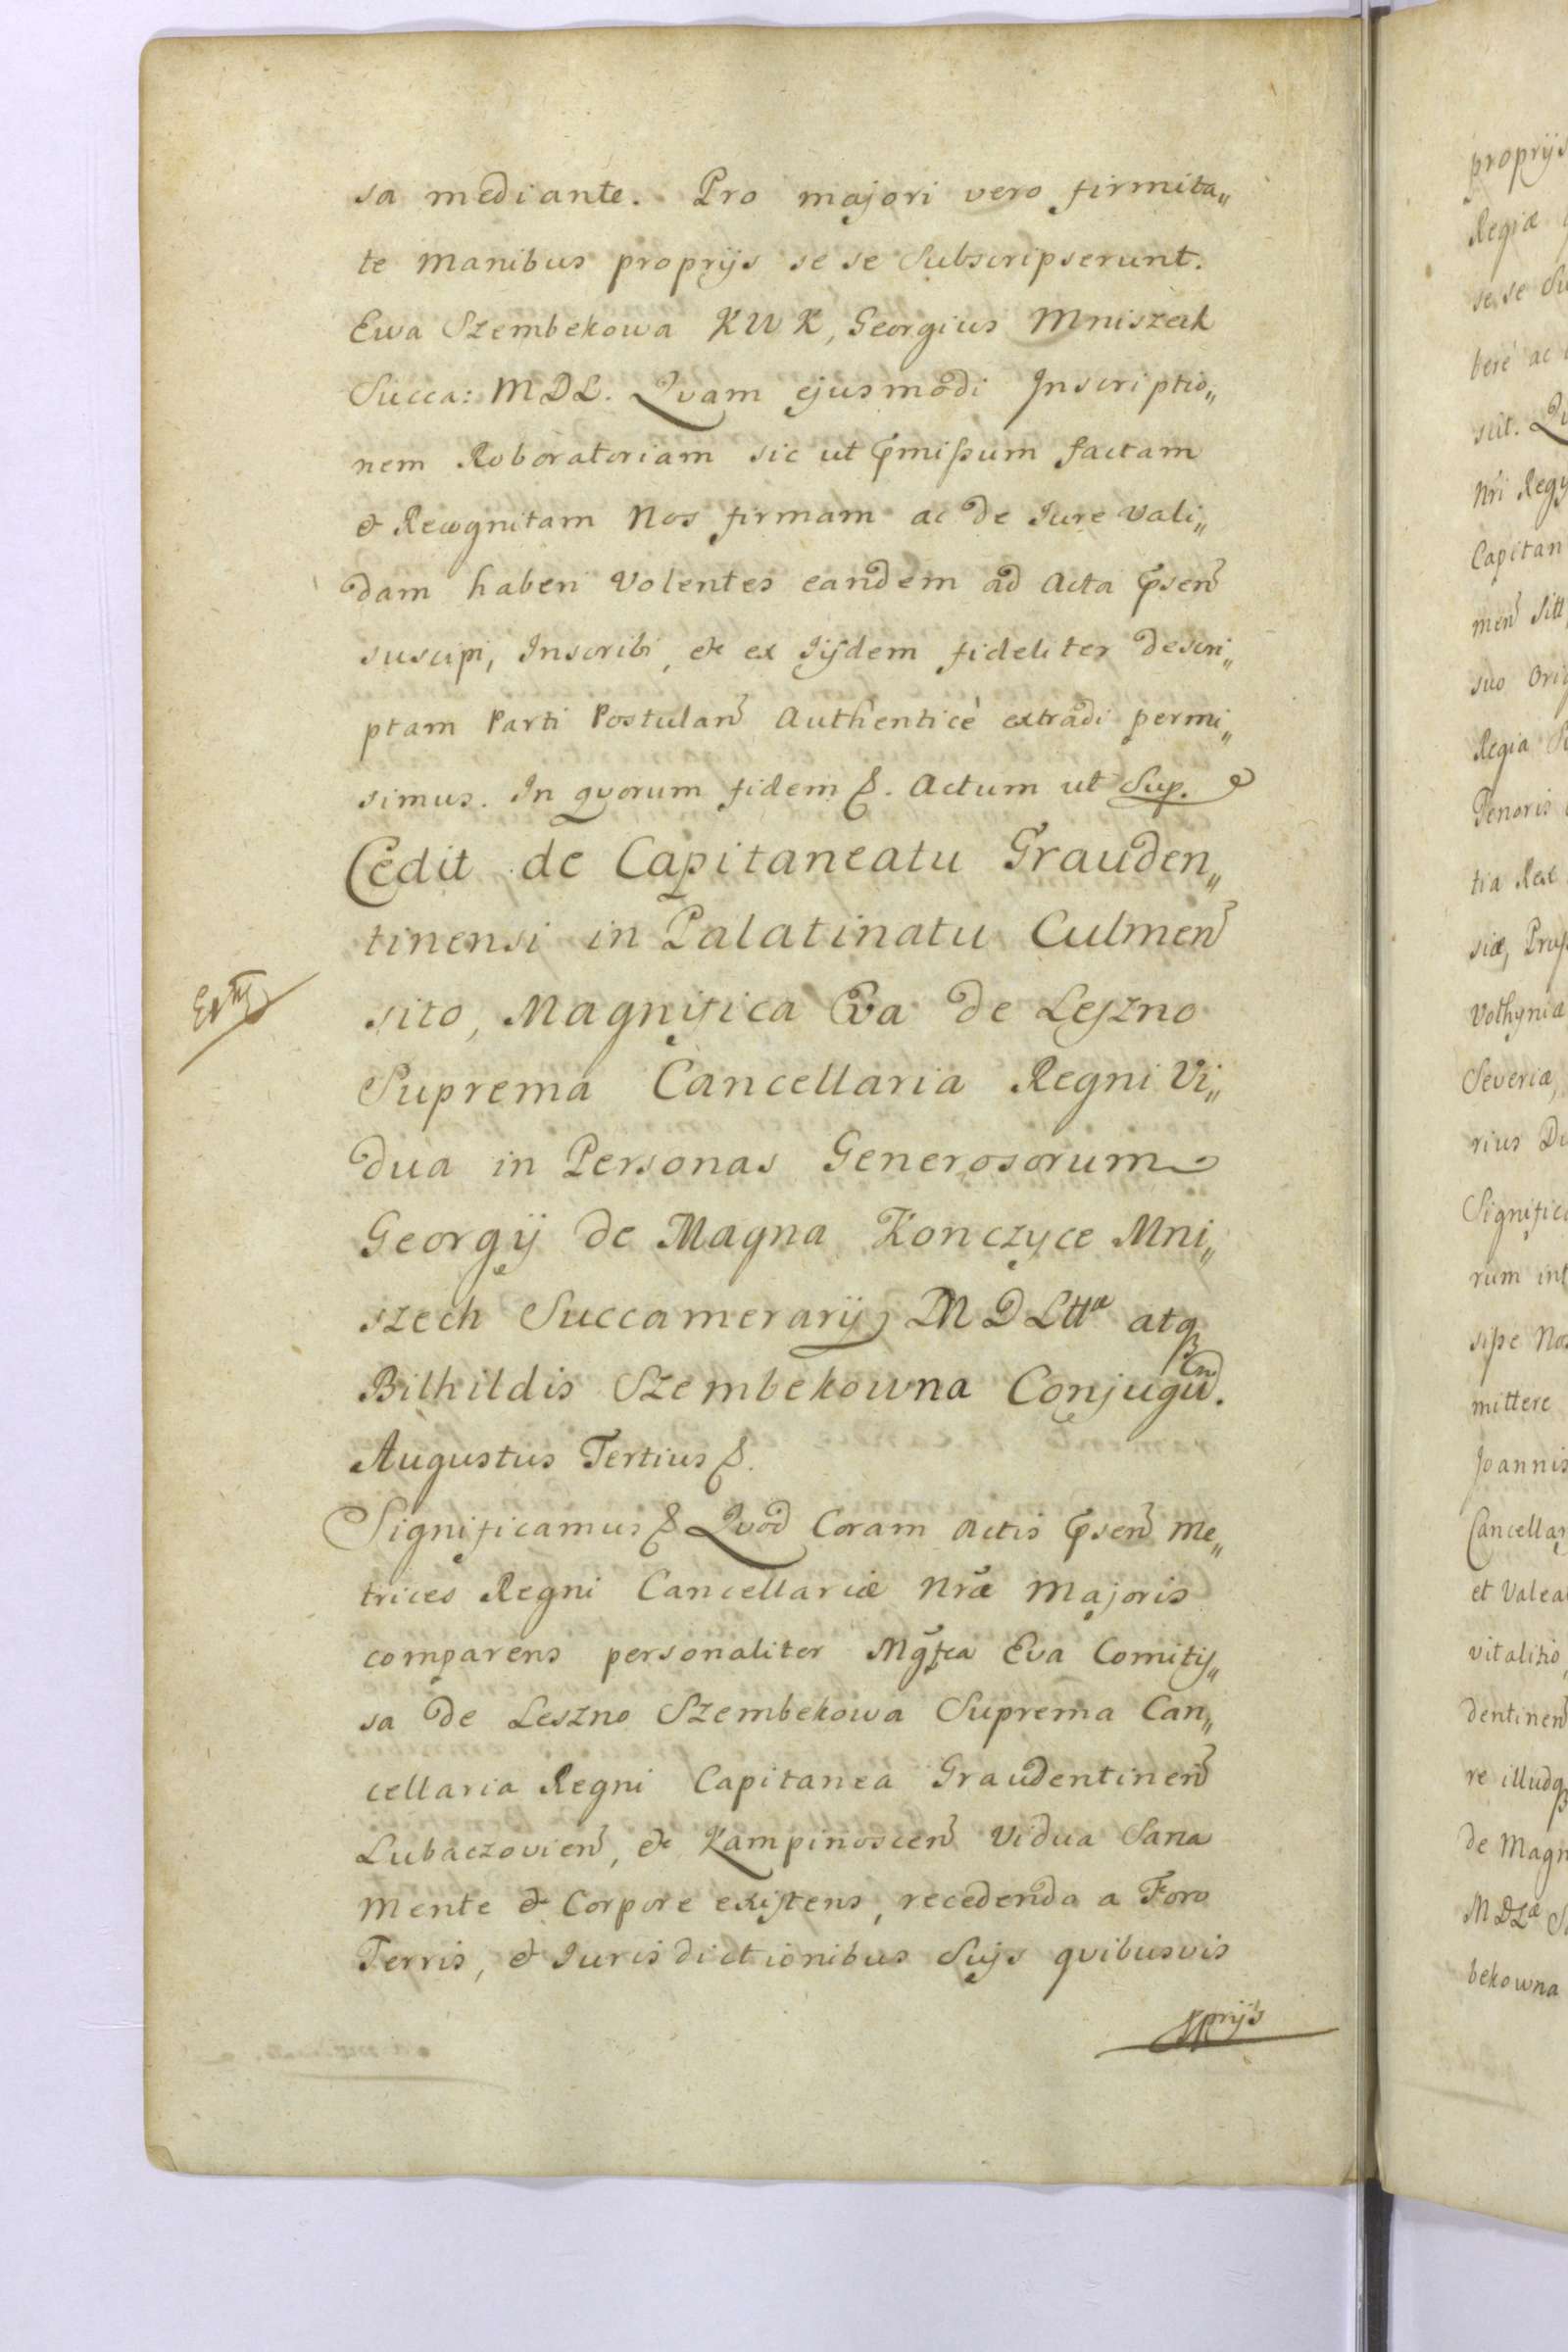 sa mediante. Pro majori vero firmita„
te Manibus proprijs se se Subscripserunt.
Ewa Szembekowa KWK, Georgius Mniszeck
Succa: MDL. Qvam ejusmodi Inscriptio„
nem Roboratoriam sic ut pmissum factam
& Recognitam Nos firmam ac de Jure Vali„
dam haberi Volentes eandem ad Acta psen
suscipi, Inscribi, & ex Iisdem fideliter descri„
ptam Parti Postulan Authenticè extradi permi„
simus. In qvorum fidem &. Actum ut Sup.
Cedit de Capitaneatu Grauden„
tinensi in Palatinatu Culmen
sito, Magnifica Eva de Leszno
Suprema Cancellaria Regni Vi„
dua in Personas Generosorum
Georgij de Magna Konczyce Mni„
szech Succamerarij MDLttæ atq
Bilhildis Szembekowna Conjugu.
Augustus Tertius &.
Significamus & Qvod Coram Actis psen Me„
trices Regni Cancellariæ Nræ Majoris
comparens personaliter Mgfca Eva Comitis„
sa de Leszno Szembekowa Suprema Can„
cellaria Regni Capitanea Graudentinen
Lubaczovien, & Kampinoscen Vidua Sana
Mente & Corpore existens, recedenda a Foro
Terris, & Jurisdictionibus Suis qvibusvis
pprijs
proprijs
Regiæ
se se Su
berè ac
sit. Qv
Nri Regy
Capitan
men Sitt
suo Orig
Regia
Tenoris
tia Rex
siæ, Prus
Volhyniæ
Severiæ,
rius Du
Significa
rum int
sipe Nos
mittere
Joannis
Cancellar
et Valea
vitalitio,
dentinen
re illudq
de Magn
MDLæ S
bekowna